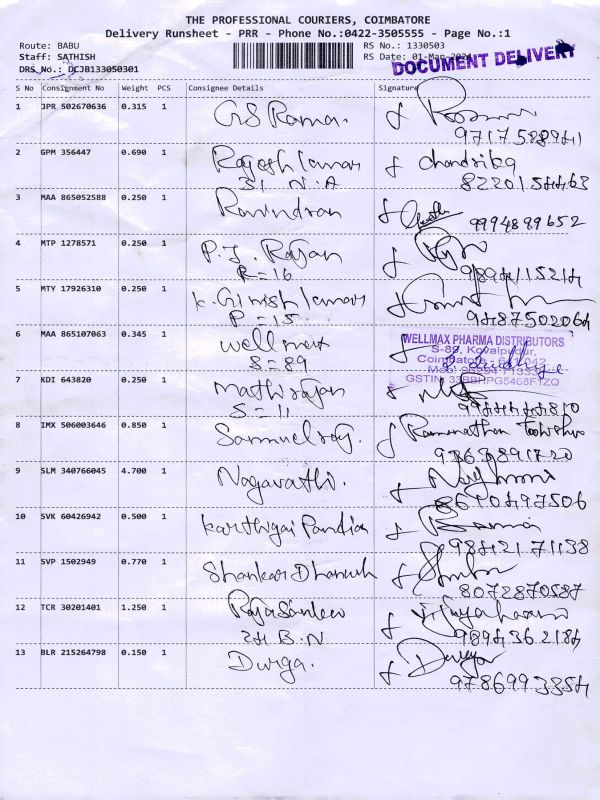 THE PROFESSIONAL COURIERS, COIMBATORE
Delivery Runsheet - PRR - Phone No.:0422-3505555 - Page No.:1
Route: BABU
RS No.: 1330503
Staff: SATHISH
RS Date: 01-Mar-2024
DOCUMENT DELIVERY
DRS No.: DCJB133050301
S No Consignment No Weight PCS Consignee Details Signature
1 JPR 502670636 0.315 1 GS Rama.
9717588941
2 GPM 356447 0.690 1 Rajeshkumar chandrika
31 N.A 8220154463
3 MAA 865052588 0.250 1 Ravindran
9994899652
4 MTP 1278571 0.250 1 P.J. Rajan
R=16 9894115214
5 MTY 17926310 0.250 1 K. Girish kumar
P=15 9487502064
6 MAA 865107063 0.345 1 wellmax
S=89
WELLMAX PHARMA DISTRIBUTORS
S-89, Kovaipudur,
Coimbatore - 641 042
7 KDI 643820 0.250 1 mathirajan
S=11
8 IMX 506003646 0.850 1 Samuelraj. Ramanathan
9 SLM 340766045 4.700 1 Nagavathi.
8610497506
10 SVK 60426942 0.500 1 Karthigai Pandian
9842171138
11 SVP 1502949 0.770 1 Shankar Dhanush
8072870587
12 TCR 30201401 1.250 1 Rajasanleev
24 B.N 9894362184
13 BLR 215264798 0.150 1 Durga. Durga
9786993354